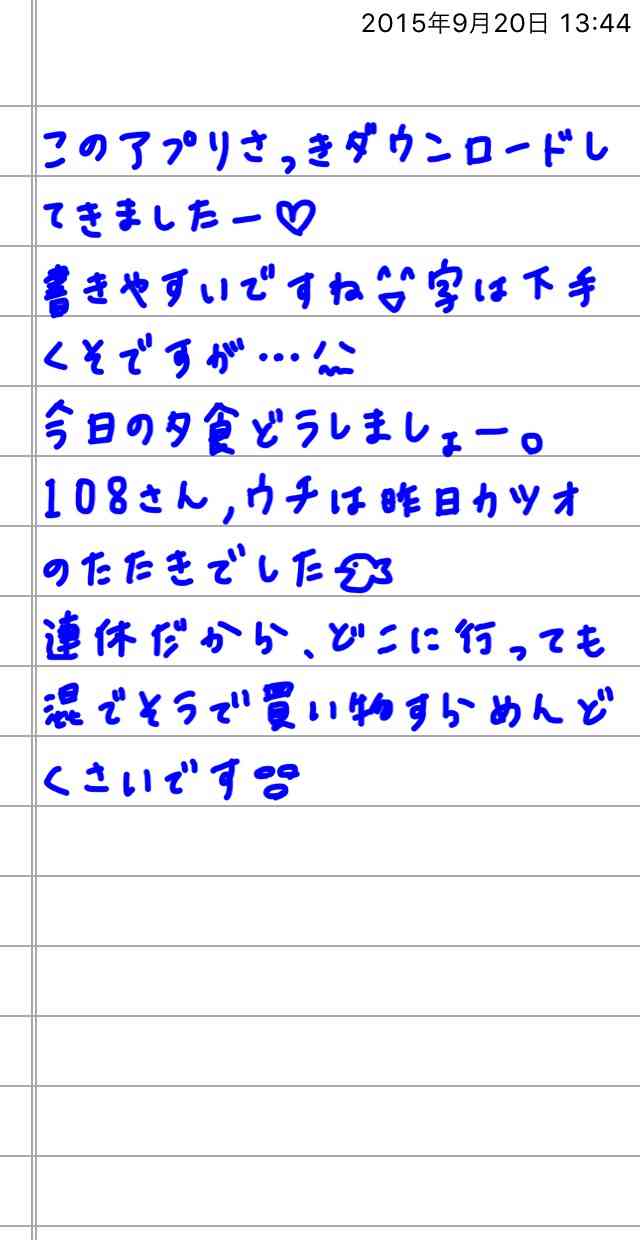 2015年9月20日 13:44
このアプリさっきダウンロードし
てきましたー♡
書きやすいですね^▽^字は下手
くそですが…^^;
今日の夕食どうしましょー。
108さん,ウチは昨日カツオ
のたたきでした🐟
連休だから、どこに行っても
混でそうで買い物すらめんど
くさいです